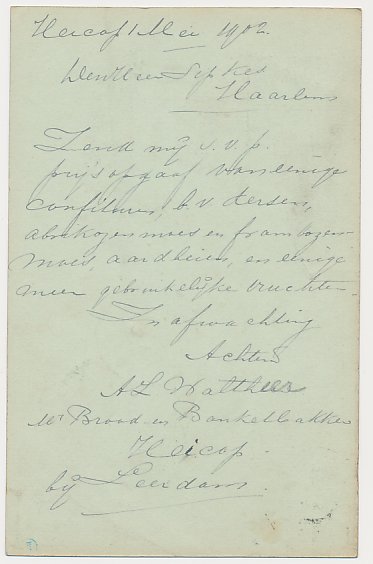 Heicop 1 Mei 1902.
Den Heer Sipkes
Haarlem
Zend mij s.v.p.
prijsopgaaf van eenige
confituren, b.v. kersen,
abrikozenmoes en frambozen-
moes, aardbeien, en eenige
meer gebruikelijke vruchten.
In afwachting
Achtend
A L Walther
Mr Brood en Banketbakker
Heicop.
bij Leerdam.